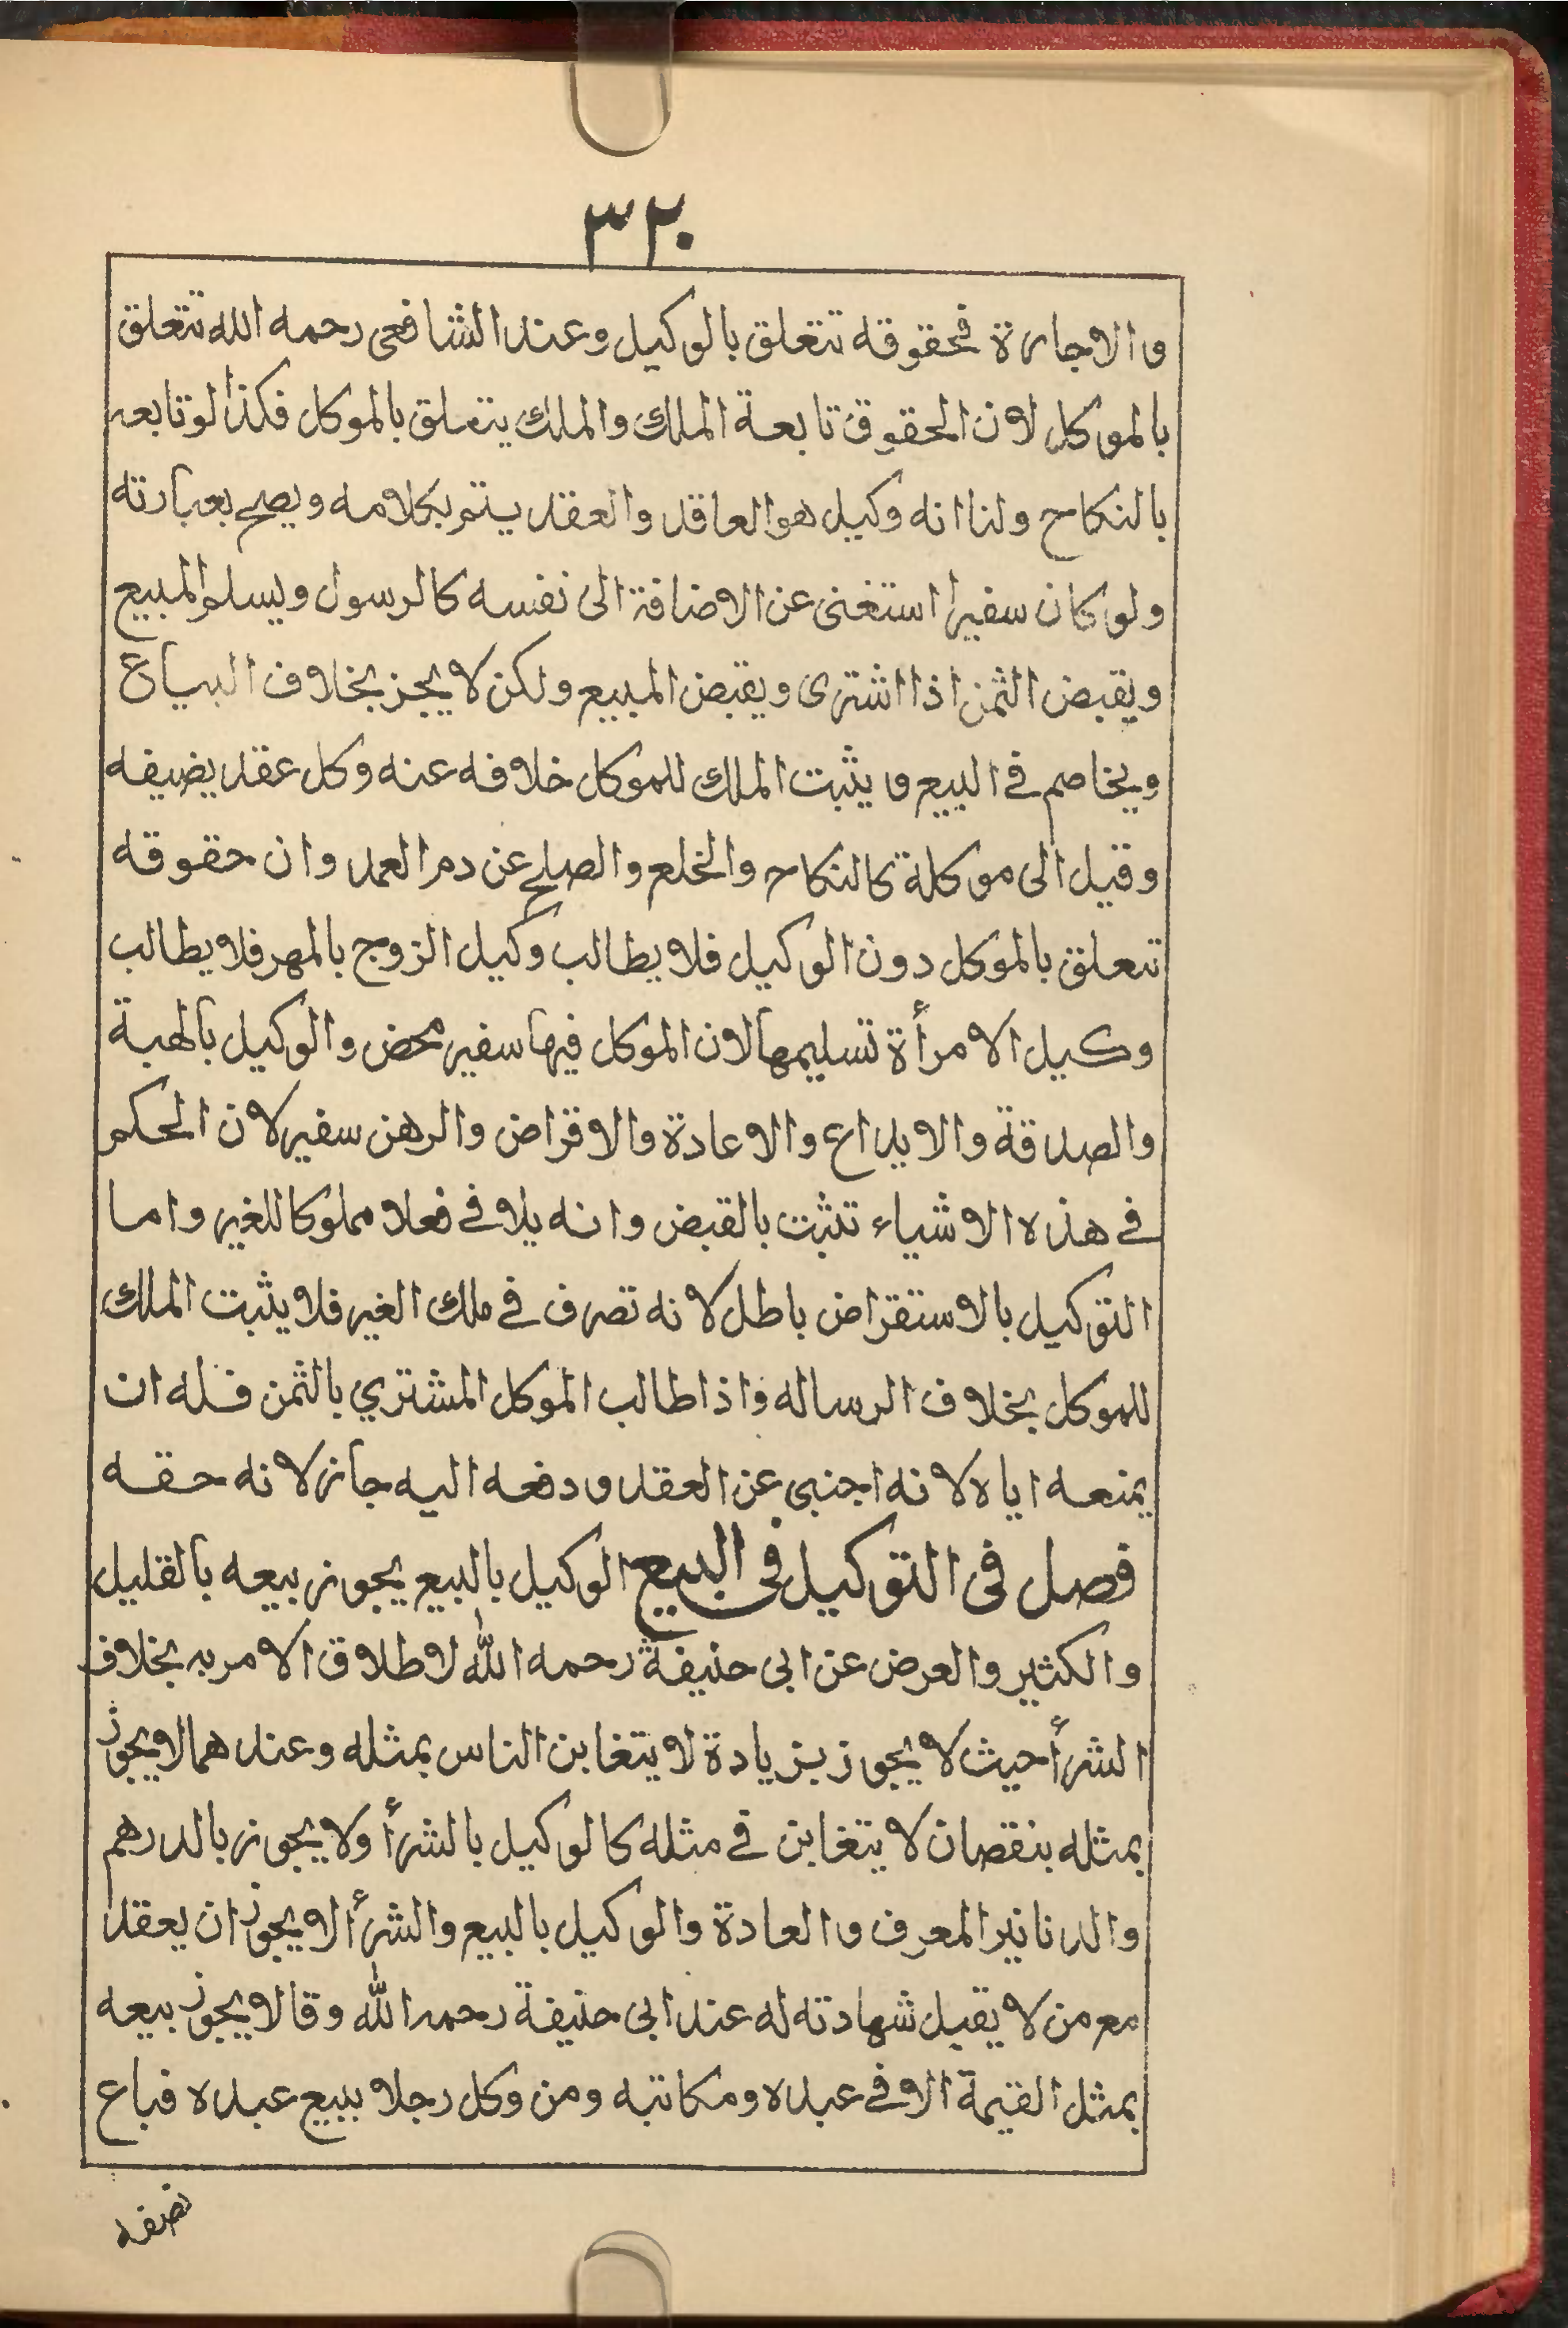 ٣٢٠
والاجارة فحقوقه تتعلق بالوكيل وعند الشافعى رحمه الله تتعلق
بالموكل لان الحقوق تابعة الملك والملك يتعلق بالموكل فكذا لو تابعه
بالنكاح ولنا انه وكيل هو العاقد والعقد يتم بكلامه ويصح بعبارته
ولو كان سفيرا استغنى عن الاضافة الى نفسه كالرسول ويسلم المبيع
ويقبض الثمن اذا اشترى ويقبض المبيع ولكن لا يجز بخلاف البياع
ويخاصم فى البيع ويثبت الملك للموكل خلافه عنه وكل عقد يضيفه
وقيل الى موكلة كالنكاح والخلع والصلح عن دم العمد وان حقوقه
تتعلق بالموكل دون الوكيل فلا يطالب وكيل الزوج بالمهر فلا يطالب
وكيل الامرأة تسليمها لان الموكل فيها سفير محض والوكيل بالهبة
والصدقة والايداع والاعادة والاقراض والرهن سفير لان الحكم
فى هذه الاشياء تثبت بالقبض وانه يلاقى فعلا مملوكا للغير واما
التوكيل بالاستقراض باطل لانه تصرف فى ملك الغير فلا يثبت الملك
للموكل بخلاف الرساله واذا طالب الموكل المشتري بالثمن فله ان
يمنعه اياه لانه اجنبى عن العقد ودفعه اليه جاز لانه حقه
فصل فى التوكيل فى البيع الوكيل بالبيع يجوز بيعه بالقليل
والكثير والعرض عن ابى حنيفة رحمه الله لاطلاق الامر به بخلاف
الشرأ حيث لا يجوز بزيادة لا يتغابن الناس بمثله وعندهما لا يجوز
بمثله بنقصان لا يتغابن فى مثله كالوكيل بالشرأ ولا يجوز بالدرهم
والدنانير المعرف والعادة والوكيل بالبيع والشرأ لا يجوز ان يعقد
مع من لا يقبل شهادته له عند ابى حنيفة رحمه الله وقالا يجوز بيعه
بمثل القيمة الا فى عبده ومكاتبه ومن وكل رجلا ببيع عبده فباع
نصفه